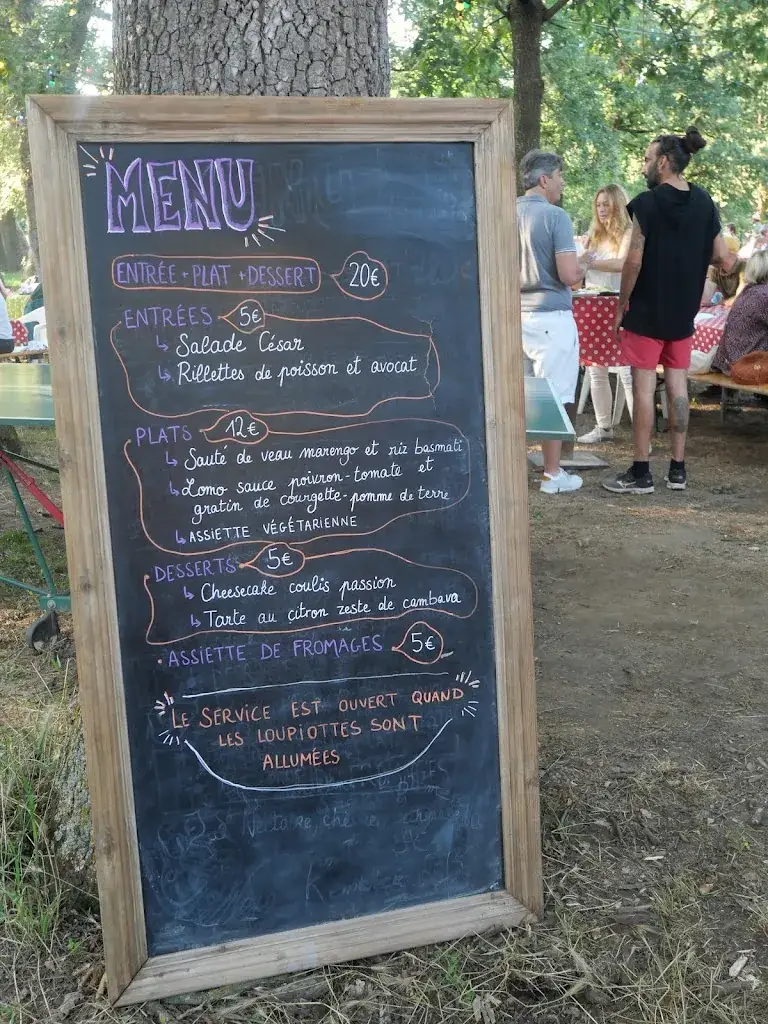 MENU
ENTRÉE + PLAT + DESSERT 20€
ENTRÉES 5€
↳ Salade César
↳ Rillettes de poisson et avocat
PLATS 12€
↳ Sauté de veau marengo et riz basmati
↳ Lomo sauce poivron-tomate et
gratin de courgette-pomme de terre
↳ ASSIETTE VÉGÉTARIENNE
DESSERTS 5€
↳ Cheesecake coulis passion
↳ Tarte au citron zeste de cambava
• ASSIETTE DE FROMAGES 5€
LE SERVICE EST OUVERT QUAND
LES LOUPIOTTES SONT
ALLUMÉES